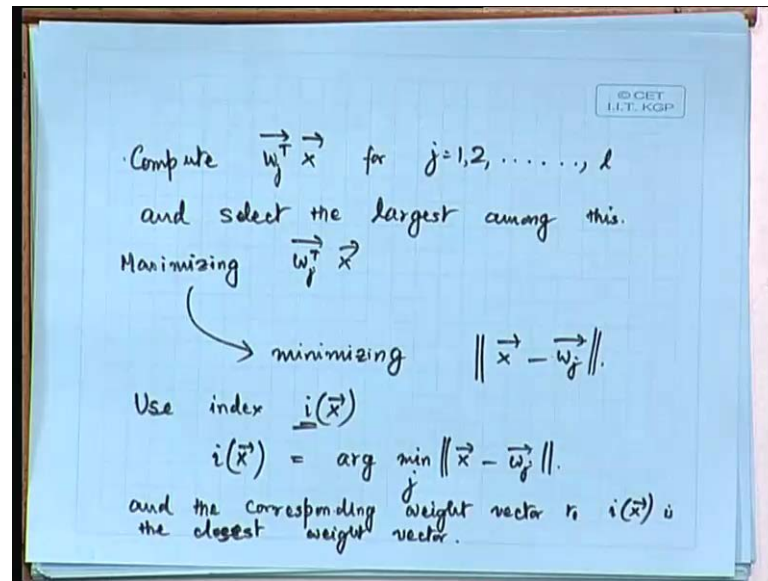 © CET
I.I.T. KGP
Compute w_j^T x for j=1,2, ......, l
and select the largest among this.
Maximizing w_j^T x
minimizing || x - w_j ||.
Use index i(x)
i(x) = arg min_j || x - w_j ||.
and the corresponding weight vector to i(x) is
the closest weight vector.